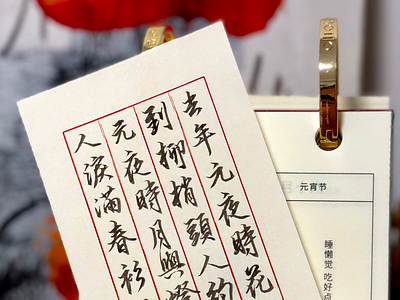 去年元夜時花
到柳梢頭人約
元夜時月與燈
人淚滿春衫
元宵节
睡懒觉 吃好点